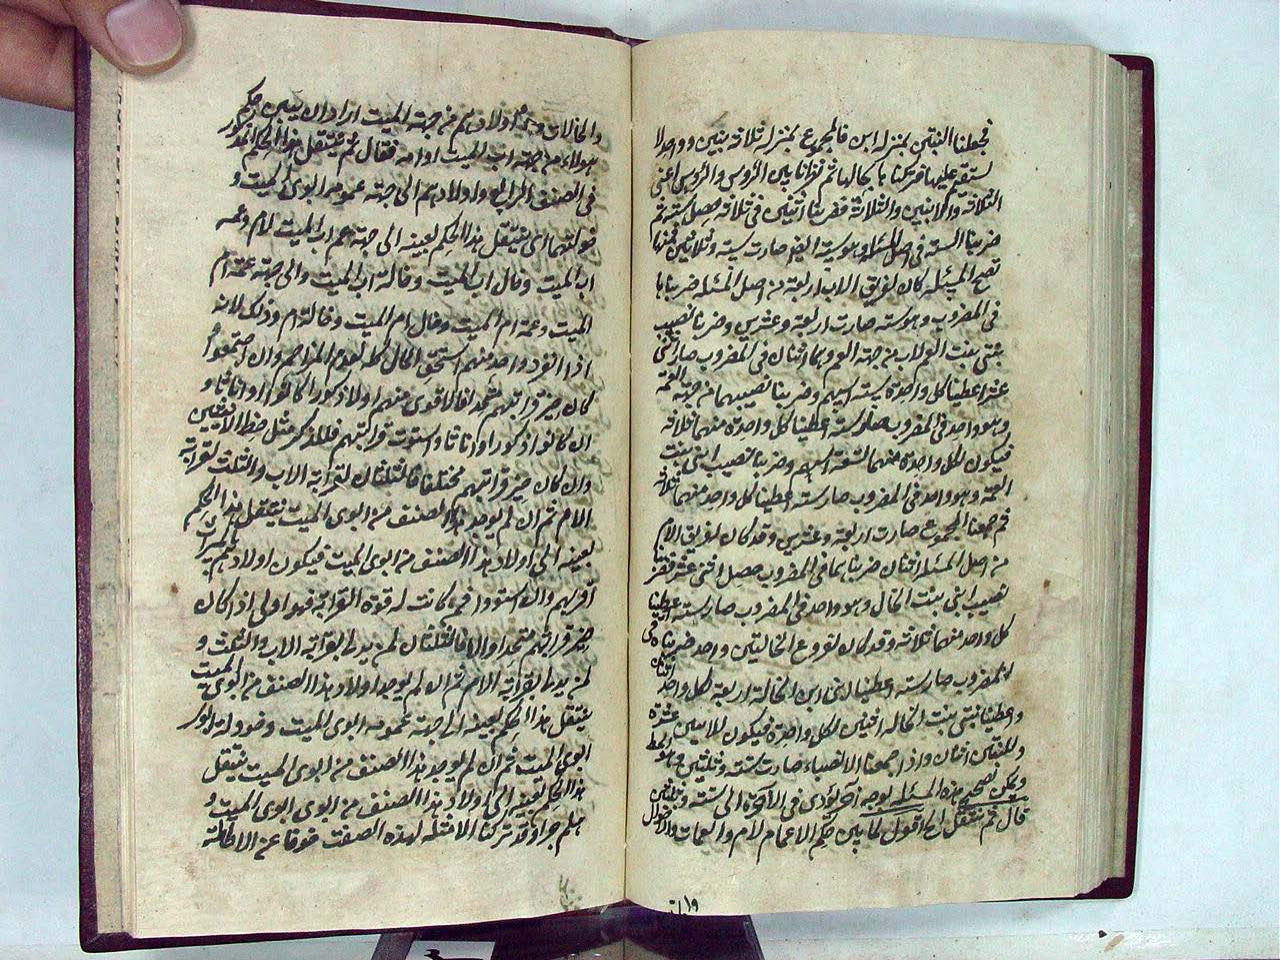 فجعلنا البنتين بمنزلة ابن فالمجموع بمنزلة ثلاثة بنين وواحد لا
يستقيم عليها فتركنا بحالها ثم نظرنا بين الرؤس والرؤس اعنى
الثلاثة والاثنين والثلاثة فضربنا اثنين فى ثلاثة حصل ستة ثم
ضربنا الستة فى اصل المسئلة وهو ستة ايضا صارت ستة وثلاثين فمنها
تصح المسئلة كان لفريق الاب اربعة من اصل المسئلة ضربناها
فى المضروب وهو ستة صارت اربعة وعشرين وضربنا نصيب
بنتى بنت العم لاب من جهة العم وهما اثنان فى المضروب صار اثنى
عشر اعطينا كل واحدة ستة اسهم وضربنا نصيبهما من جهة العمة
وهو واحد فى المضروب صار ستة اعطينا كل واحدة منهما ثلاثة
فيكون لكل واحدة منهما تسعة اسهم وضربنا نصيب ابنى بنت
العمة وهو واحد فى المضروب صار ستة اعطينا كل واحد منهما ثلاثة
ثم جمعنا المجموع صارت اربعة وعشرين وقد كان لفريق الام
من اصل المسئلة اثنان ضربناهما فى المضروب حصل اثنى عشر فضربنا
نصيب ابنى بنت الخال وهو واحد فى المضروب صار ستة اعطينا
كل واحد منهما ثلاثة وقد كان لفروع الخالتين واحد ضربناه فى
المضروب صار ستة اعطينا لابنى ابن الخالة اربعة لكل واحد اثنان
واعطينا بنتى بنت الخالة اثنين لكل واحدة فيكون للابنين عشرة
وللبنتين اثنان واذا جمعنا الانصباء صارت ستة وثلثين وهو المط
ويمكن تصحيح هذه المسئلة بوجه آخر يؤدى فى الآخرة الى ستة وثلثين
قال ثم ينتقل الخ اقول لما بين حكم الاعمام لام والعمات والاخوال
والخالات واولادهم من جهة الميت اراد ان يبين حكم
هؤلاء من جهة اب الميت او امه فقال ثم ينتقل هذا الحكم المذكور
فى الصنف الرابع واولادهم الى جهة عمومة ابوى الميت و
خولتهما اى ينتقل هذا الحكم بعينه الى جهة عم اب الميت لام وعمة
اب الميت وخال اب الميت وخالة اب الميت والى جهة عم ام
الميت وعمة ام الميت وخال ام الميت وخالة ام وذلك لانه
اذا انفرد واحد منهم استحق المال كله لعدم المزاحم وان اجتمعوا
كان حيز قرابتهم متحدا فالاقوى منهم اولا ذكورا كانوا او اناثا و
ان كانوا ذكورا واناثا واستوت قرابتهم فللذكر مثل حظ الانثيين
وان كان حيز قرابتهم مختلفا فالثلثان لقرابة الاب والثلث لقرابة
الام ثم ان لم يوجد هذا الصنف من ابوى الميت ينتقل هذا الحكم
بعينه الى اولاد هذا الصنف من ابوى الميت فيكون اولادهم بالميراث
اقربهم وان استووا فمن كانت له قوة القرابة فهو اولى اذا كان
حيز قرابتهم متحدا والا فالثلثان لمن يدلى بقرابة الاب والثلث و
لمن يدلى بقرابة الام ثم ان لم يوجد اولاد هذا الصنف من ابوى الميت
ينتقل هذا الحكم بعينه الى جهة عمومة ابوى الميت وخولة ابوى
ابوى الميت ثم ان لم يوجد هذا الصنف من ابوى الميت ينتقل
هذا الحكم بعينه الى اولاد هذا الصنف من ابوى ابوى الميت و
هلم جرا وقد تركنا الامثلة لهذه الصنف خوفا عن الاطالة